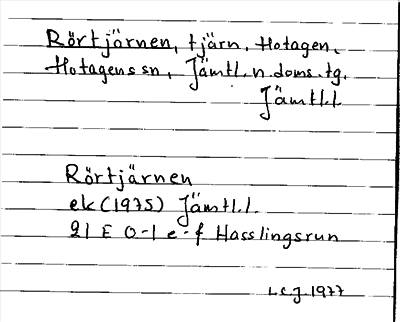 Rörtjärnen, tjärn, Hotagen,
Hotagens sn, Jämtl. n. doms. tg,
Jämtl.l
Rörtjärnen
ek (1975) Jämtl.l.
21 E 0-1 e-f Hasslingsrun
L.C.J. 1977